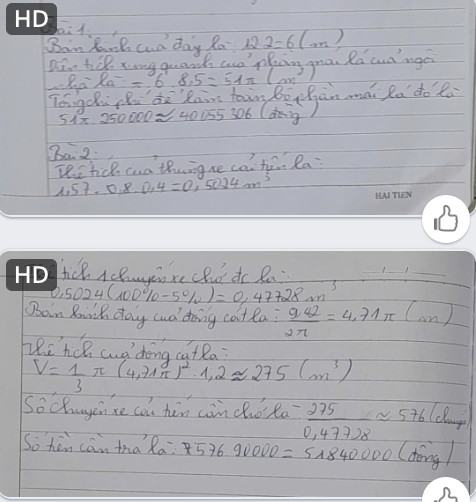 HD
Bài 1:
Bán kính của đáy là 12:2=6(m)
Diện tích xung quanh của phần mái lá của ngôi
nhà là = 6 8,5 = 51π (m²)
Tổng chi phí để làm toàn bộ phần mái lá đó là
51π. 250000≈ 40055306 (đồng)
Bài 2:
Thể tích của thùng xe cải tiến là:
1,57 . 0,8 0,4=0,5024 m³
HAI TIEN
HD
tích 1 chuyến xe chở đc là:
0,5024(100%-5%)= 0,47728 m³
Bán kính đáy của đống cát là: 9,42/2π = 4,71π (m)
Thể tích của đống cát là:
V= 1/3 π (4,71π)² 1,2 ≈ 275 (m³)
Số chuyến xe cải tiến cần chở là = 275/0,47728 ≈ 576 (chuyến)
Số tiền cần trả là: 576 90000 = 51840000 (đồng)